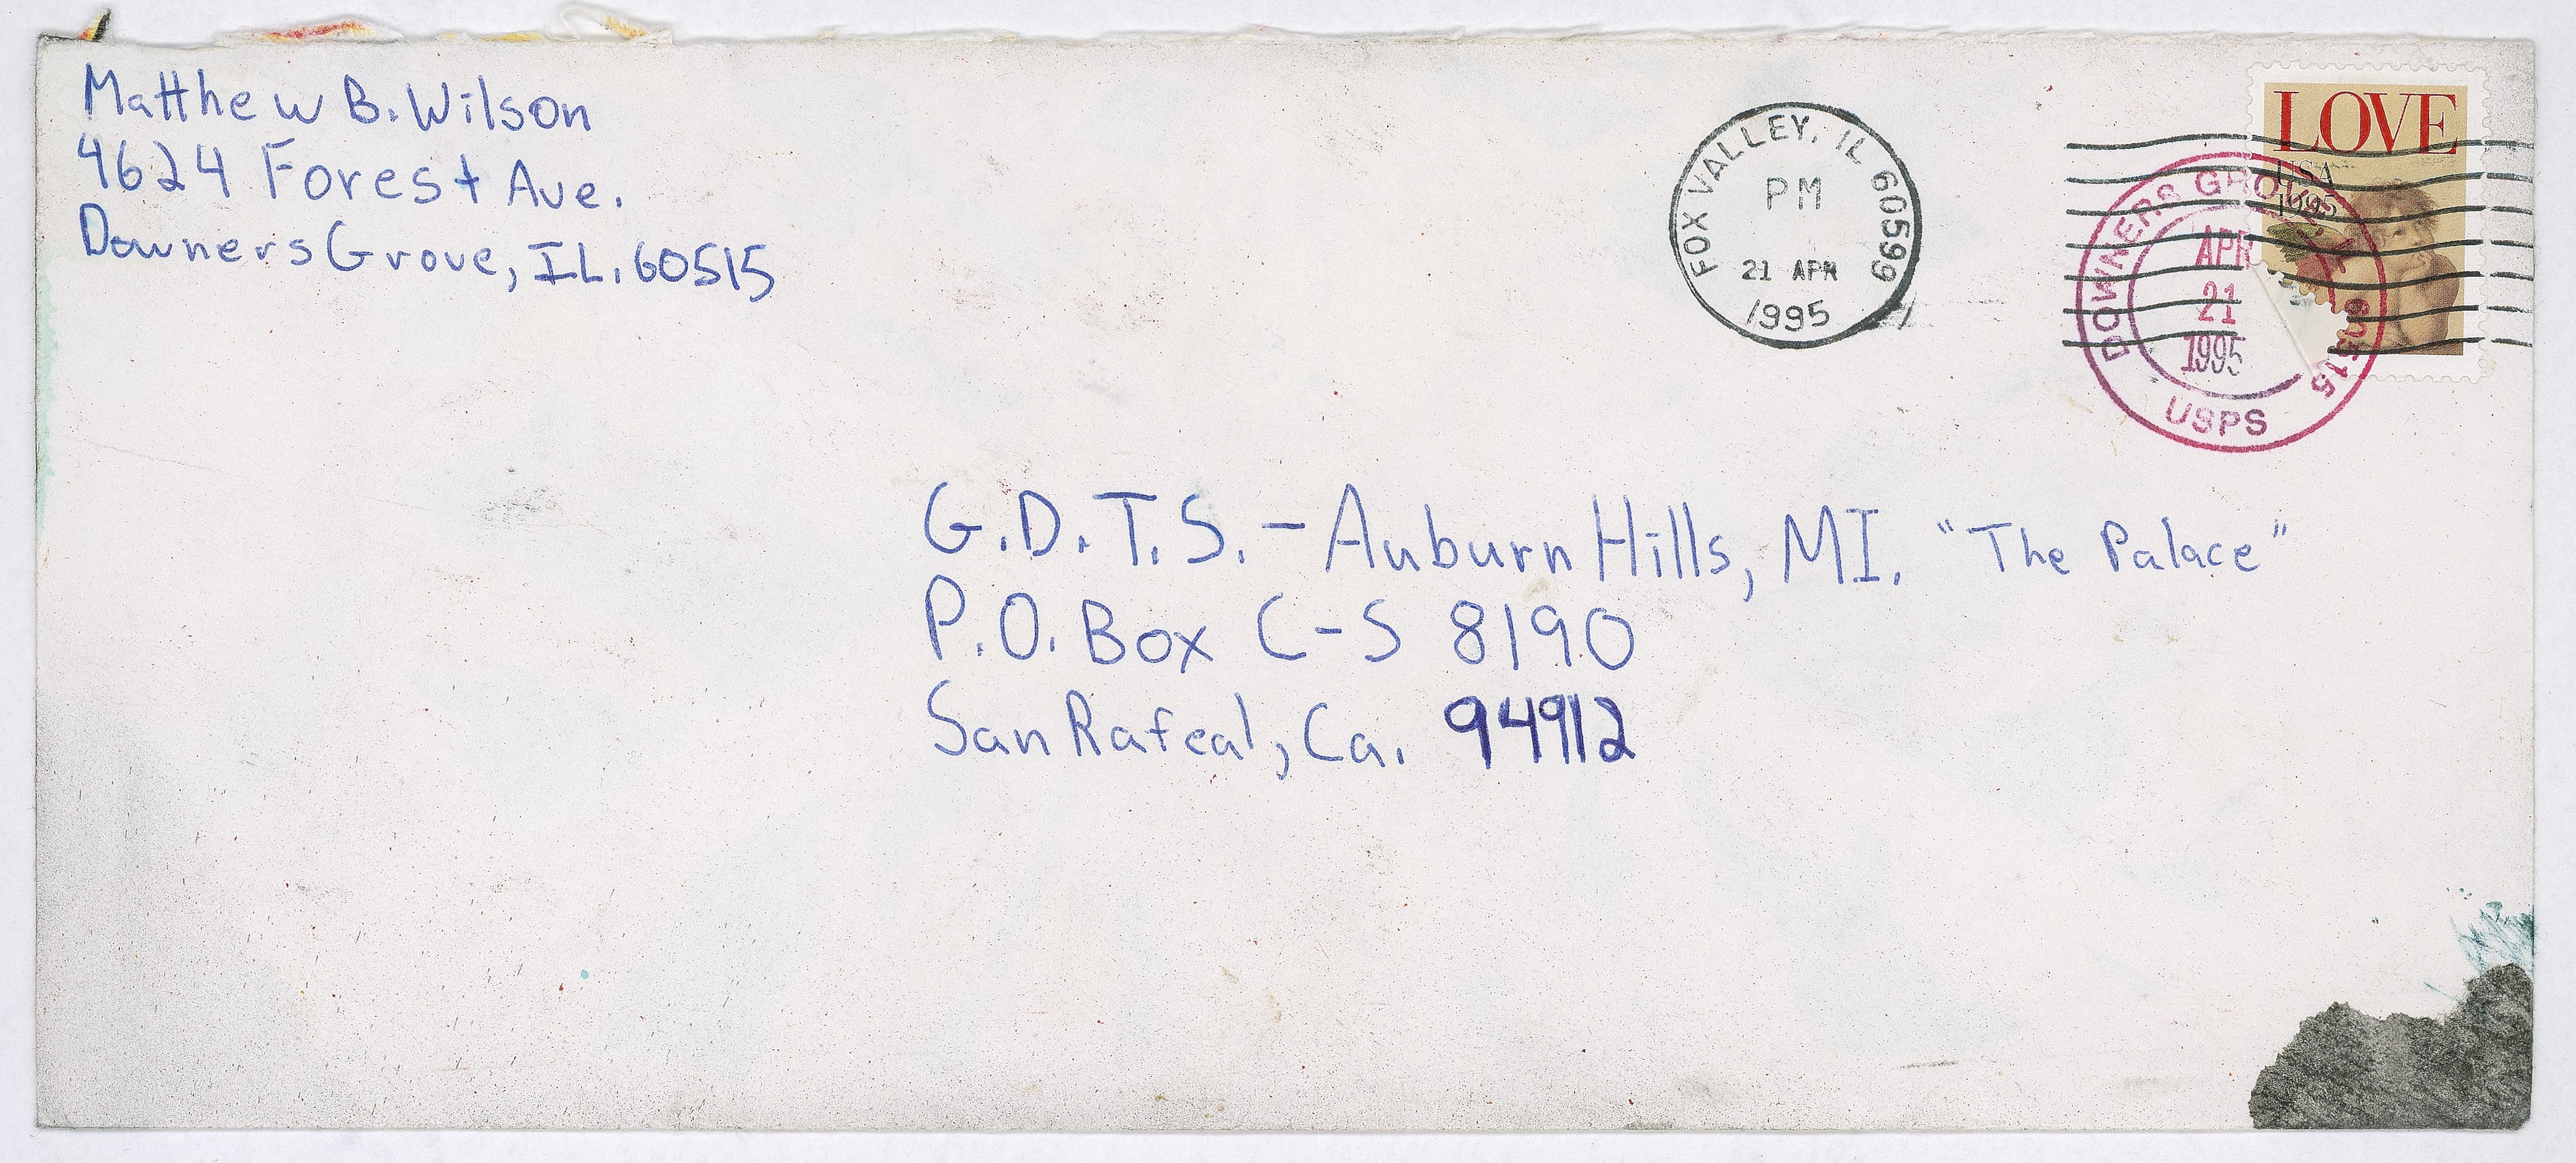 Matthew B. Wilson
4624 Forest Ave.
Downers Grove, IL. 60515
FOX VALLEY, IL 60599
PM
21 APR
1995
LOVE
USA
1995
DOWNERS GROVE, IL 60515
APR
21
1995
USPS
G.D.T.S. - Auburn Hills, MI. "The Palace"
P.O. Box C-S 8190
San Rafeal, Ca. 94912